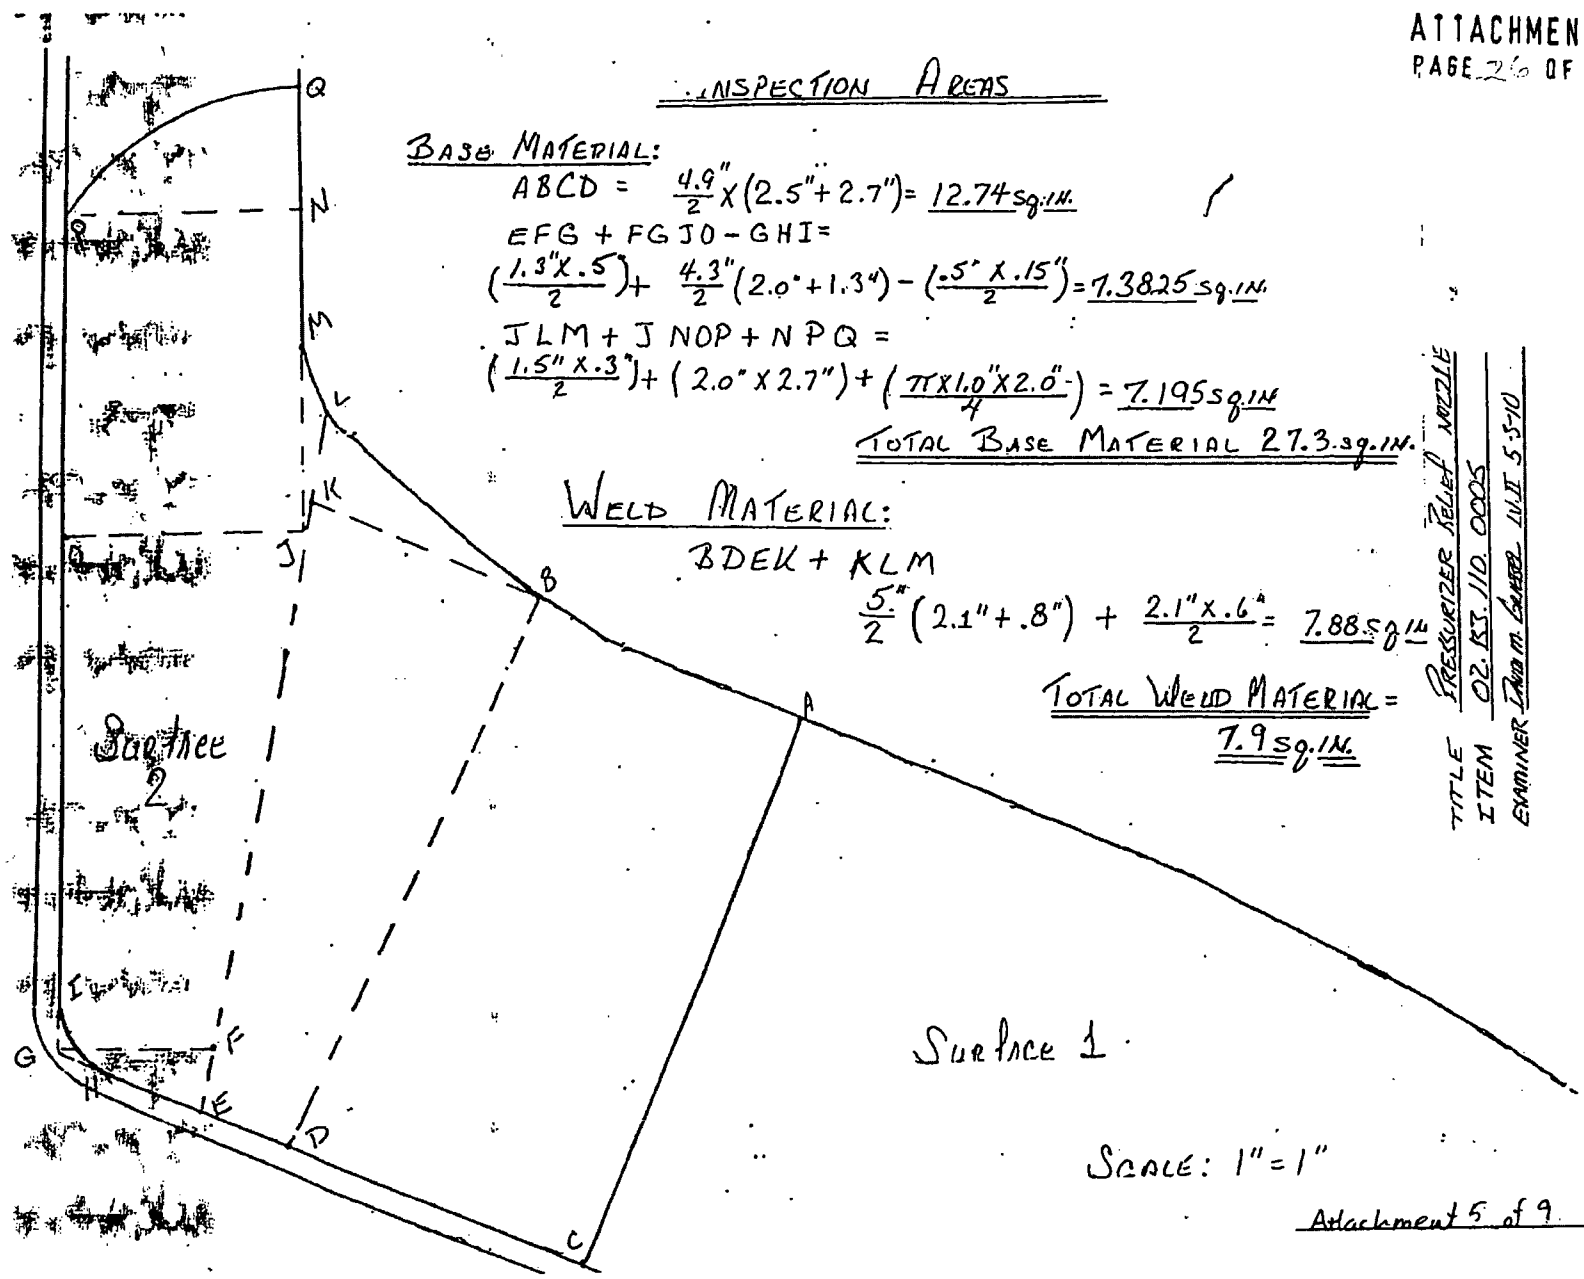 ATTACHMEN
PAGE 26 OF
INSPECTION AREAS
BASE MATERIAL:
ABCD = 4.9"/2 X (2.5" + 2.7") = 12.74 sq.in.
EFG + FGJO - GHI =
(1.3" X .5/2) + 4.3"/2 (2.0" + 1.3") - (.5" X .15"/2) = 7.3825 sq.in.
JLM + JNOP + NPQ =
(1.5" X .3"/2) + (2.0" X 2.7") + (π X 1.0" X 2.0"/4) = 7.195 sq.in
TOTAL BASE MATERIAL 27.3 sq.in.
WELD MATERIAL:
BDEK + KLM
5."/2 (2.1" + .8") + 2.1" X .6"/2 = 7.88 sq in
TOTAL WELD MATERIAL =
7.9 sq.in.
TITLE PRESSURIZER Relief NOZZLE
ITEM 02.B3.110.0005
EXAMINER LV.II 5-5-10
Q
N
P
M
L
K
J
O
B
A
Surface
2
I
F
G
H
E
D
C
Surface 1
SCALE: 1" = 1"
Attachment 5 of 9